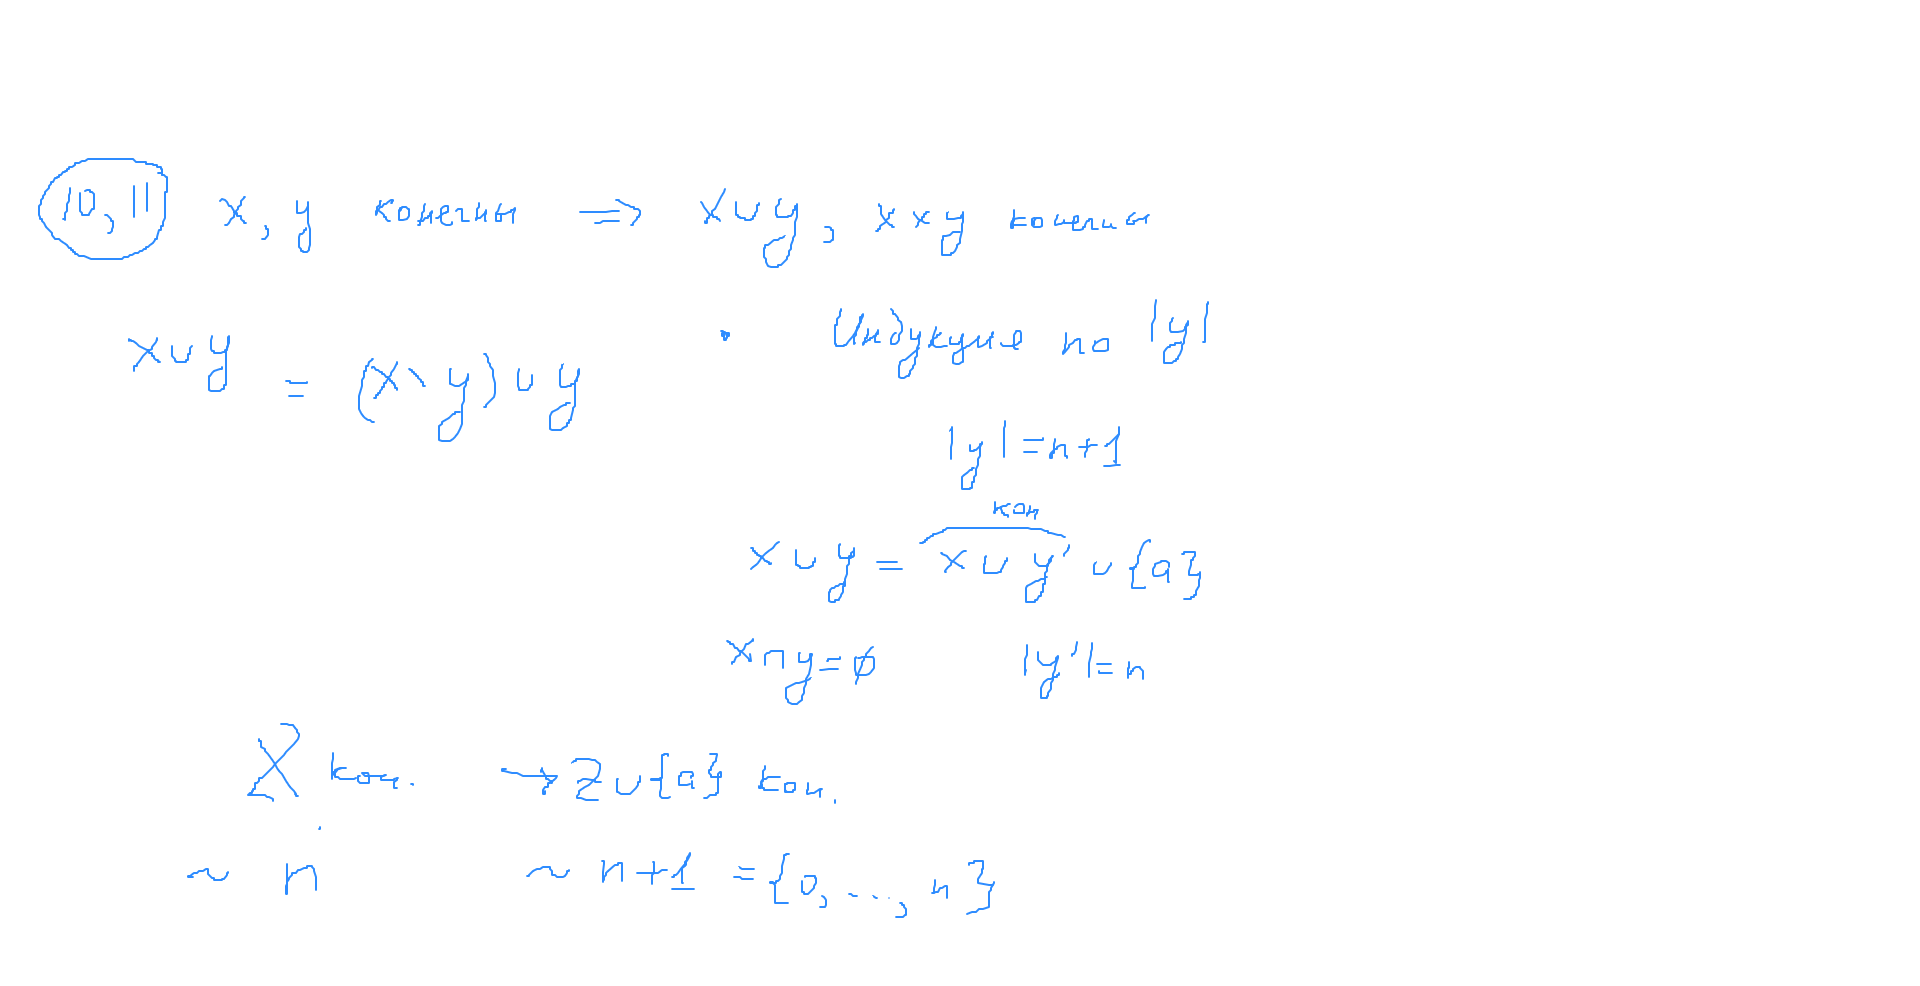 10, 11 x, y конечны ⇒ x∪y, x×y конечны
x∪y = (x∖y)∪y
• Индукция по |y|
|y|=n+1
кон
x∪y = x∪y' ∪{a}
x∩y=∅ |y'|=n
кон. → Z∪{a} кон.
~ n ~ n+1 = {0, ..., n}